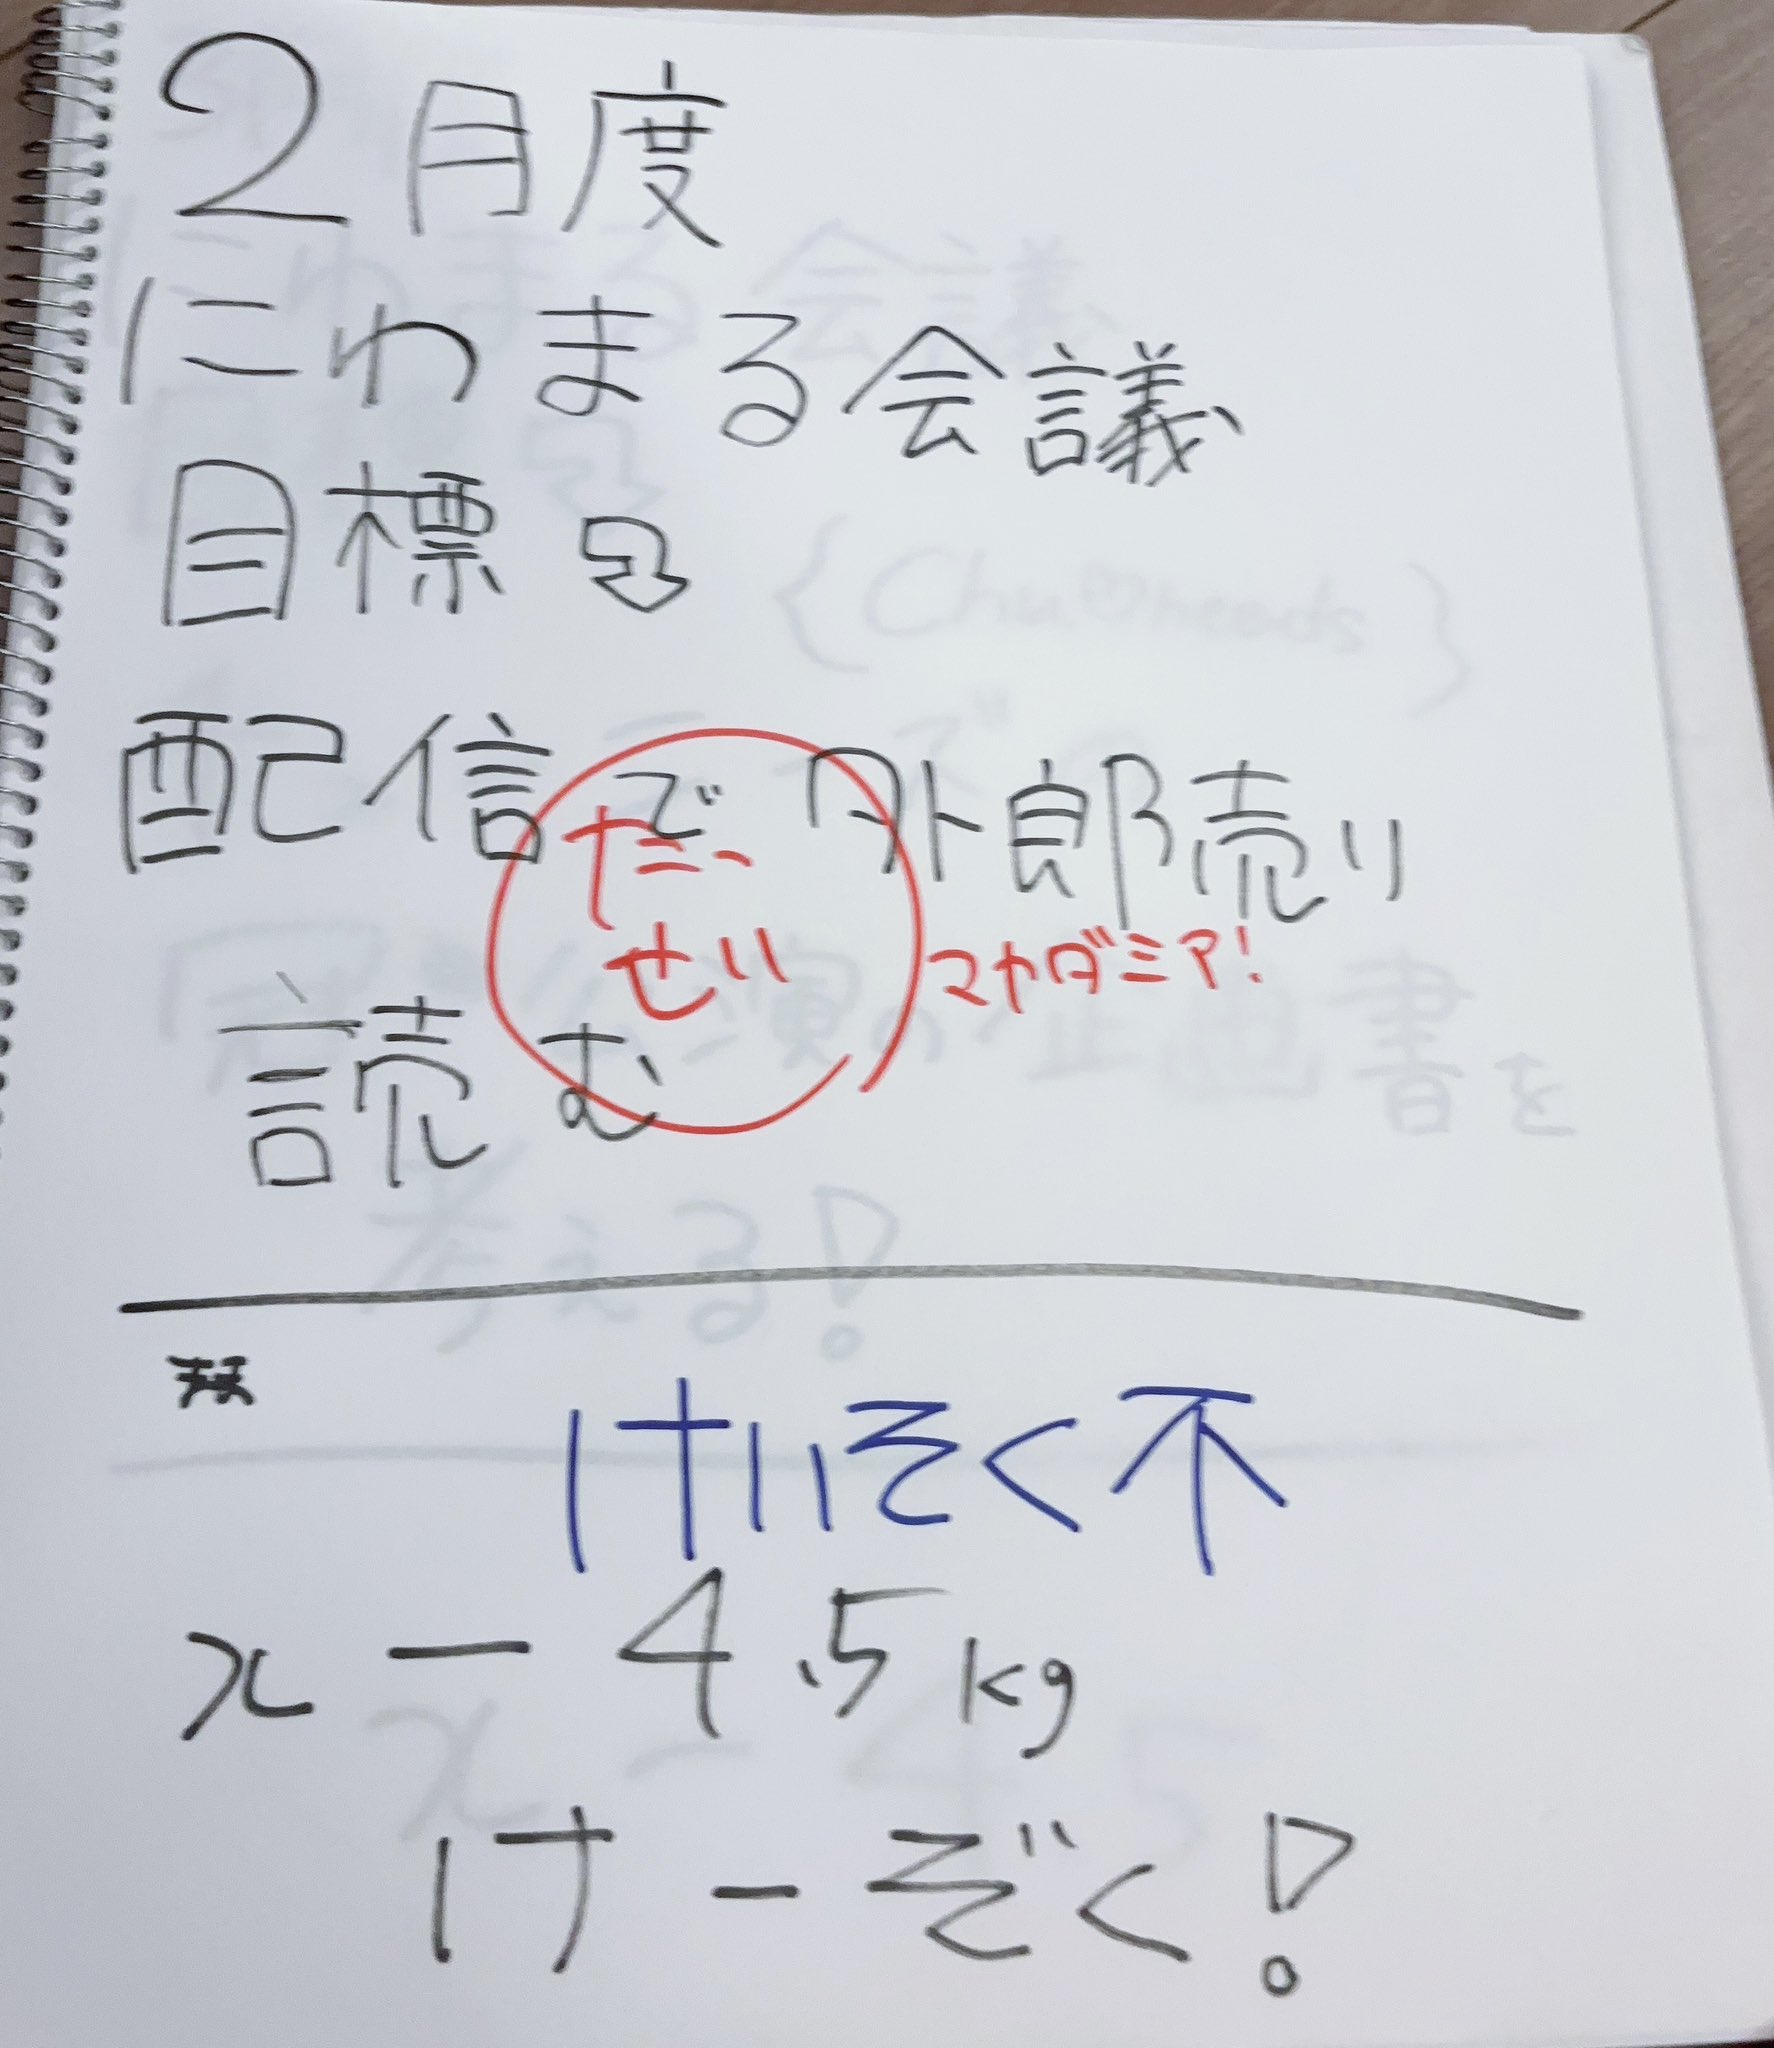 2月度
にわまる会議
目標
配信で外郎売り
読む
だ
せい
マカダミア!
けいぞく不
x-4.5kg
けーぞく!